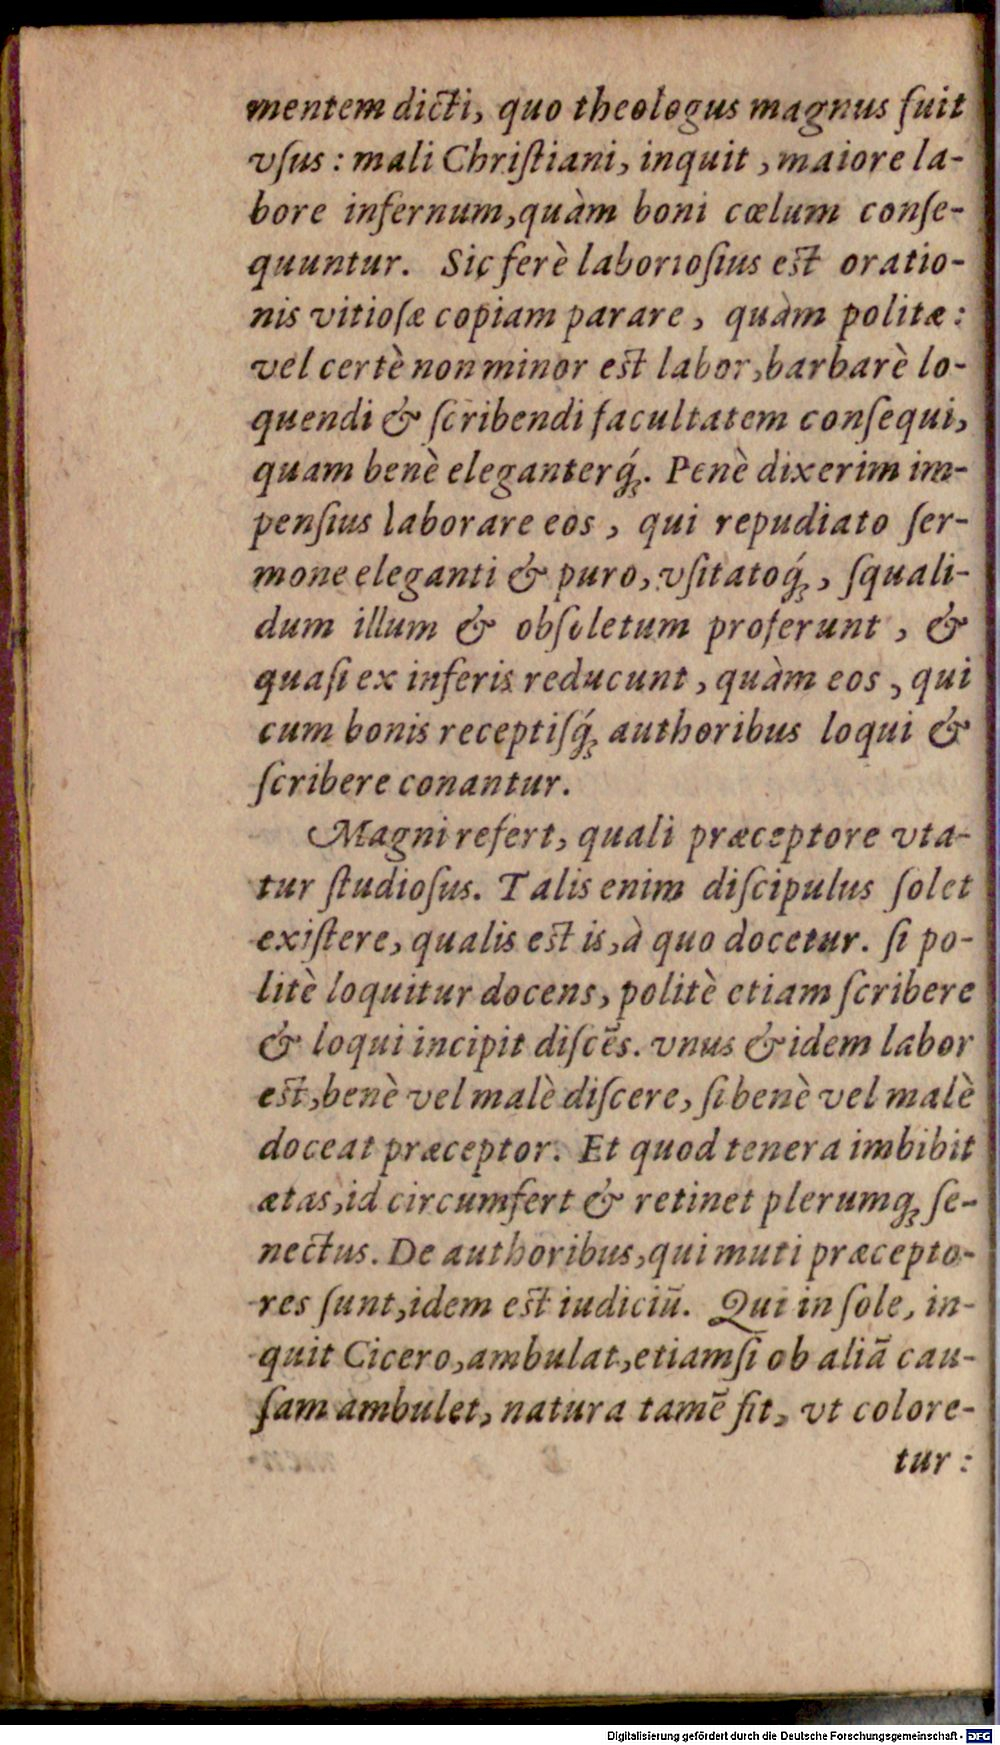 mentem dicti, quo theologus magnus fuit
vſus : mali Chriſtiani, inquit , maiore la-
bore infernum, quàm boni cœlum conſe-
quuntur. Sic ferè laborioſius eſt oratio-
nis vitioſæ copiam parare , quàm politæ :
vel certè non minor eſt labor, barbarè lo-
quendi & ſcribendi facultatem conſequi,
quam benè eleganterq́;. Penè dixerim im-
penſius laborare eos , qui repudiato ſer-
mone eleganti & puro, vſitatoq́; , ſquali-
dum illum & obſoletum proferunt , &
quaſi ex inferis reducunt , quàm eos , qui
cum bonis receptiſq́; authoribus loqui &
ſcribere conantur.
Magni refert, quali præceptore vta-
tur ſtudioſus. Talis enim diſcipulus ſolet
exiſtere, qualis eſt is, à quo docetur. ſi po-
litè loquitur docens, politè etiam ſcribere
& loqui incipit diſcẽs. vnus & idem labor
eſt, benè vel malè diſcere, ſi benè vel malè
doceat præceptor. Et quod tenera imbibit
ætas, id circumfert & retinet plerumq; ſe-
nectus. De authoribus, qui muti præcepto-
res ſunt, idem eſt iudiciũ. Qui in ſole, in-
quit Cicero, ambulat, etiamſi ob aliã cau-
ſam ambulet, natura tamẽ fit, vt colore-
tur :
Digitalisierung gefördert durch die Deutsche Forschungsgemeinschaft - DFG